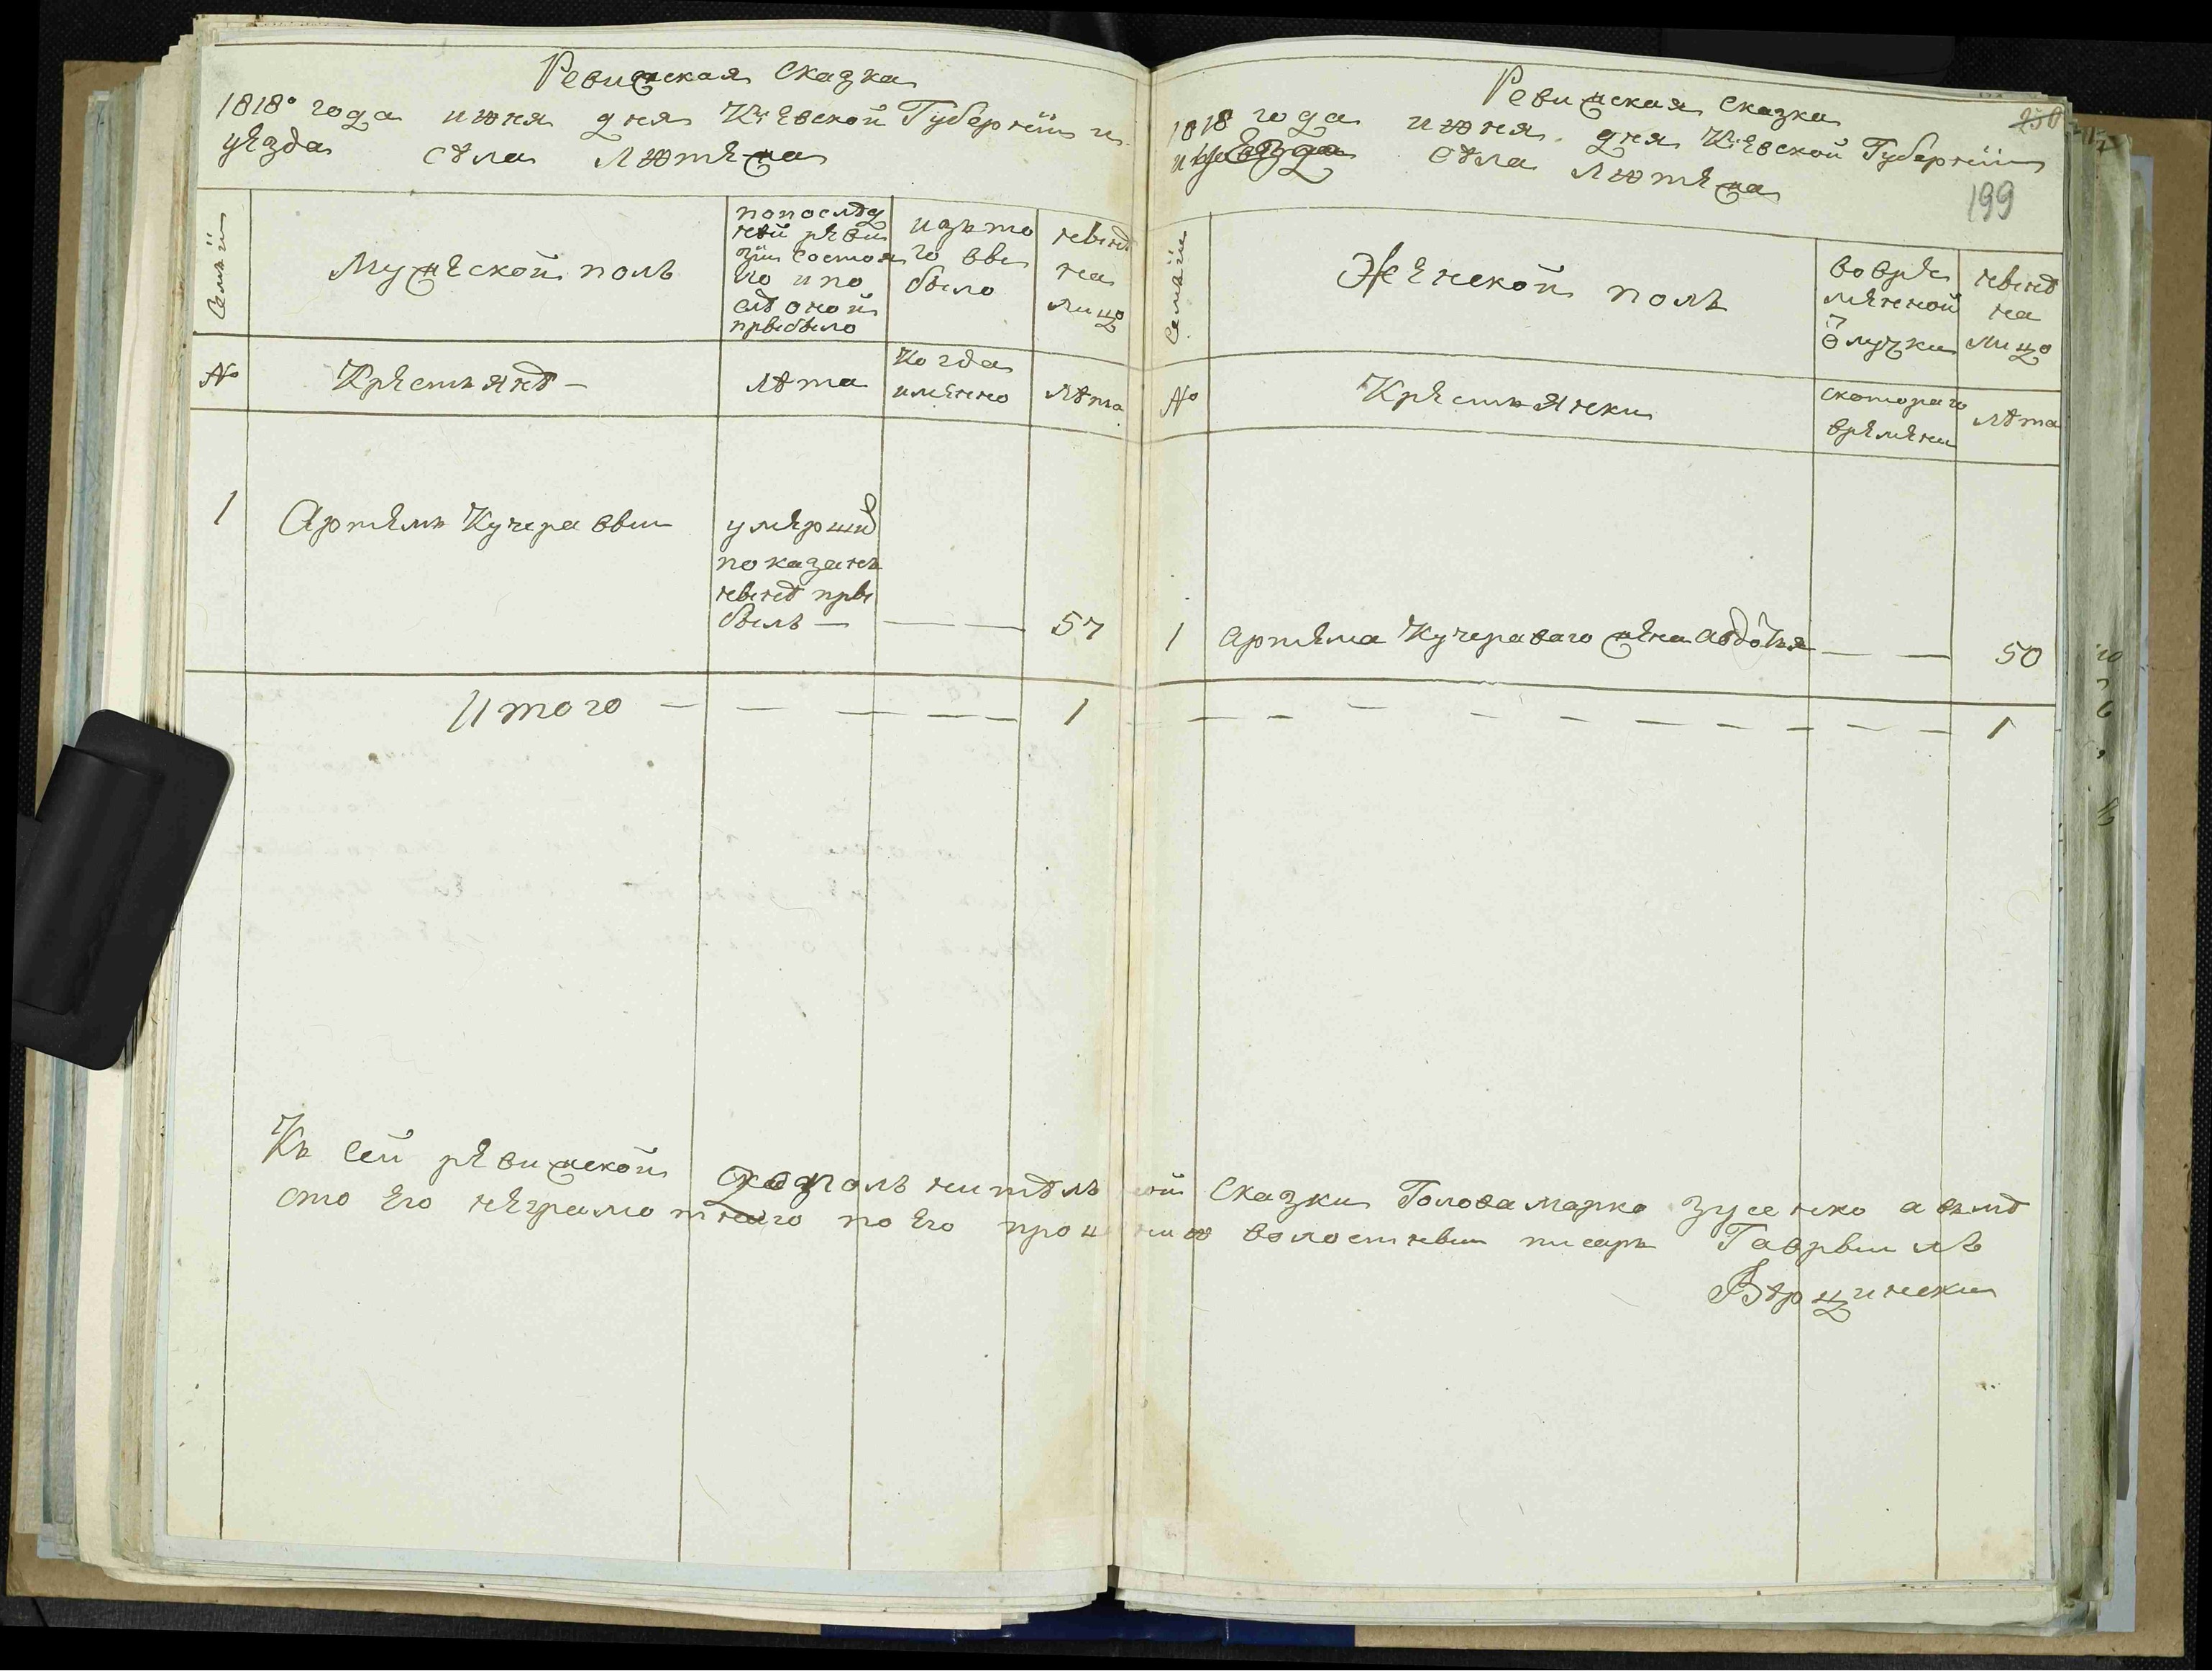 Ревижская Сказка
1818º года июня дня Киевской Губернїи и
уезда села Лютежа
Семьи
Мужеской полъ
попоследу
ней реви
зїи состоя
ло и по
слѣ оной
прыбыло
изъ то
го вы
было
нынѣ
на
лицо
№
Крестьянѣ —
лѣта
Когда
именно
лѣта
1 Артемъ Кучеравыи
умершiи
показанъ
нынѣ пры
былъ — — — 57
Итого — — — — — 1
Ревижская Сказка
250
1818 года июня дня Киевской Губернїи
и уезда села Лютежа
199
Семьи
Женской полъ
во вре
менной
ѿлучки
нынѣ
на
лицо
№
Крестьянки
скотораго
времени
лѣта
1 Артема Кучераваго жена Авдотья — — 50
— — — — — — — — — 1
Къ сей ревижской дополнителъной Сказки Голова Марко Зусенко а вмѣ
сто его неграмотнаго по его прошению волостныи писаръ Гаврыилъ
Вѣрцински